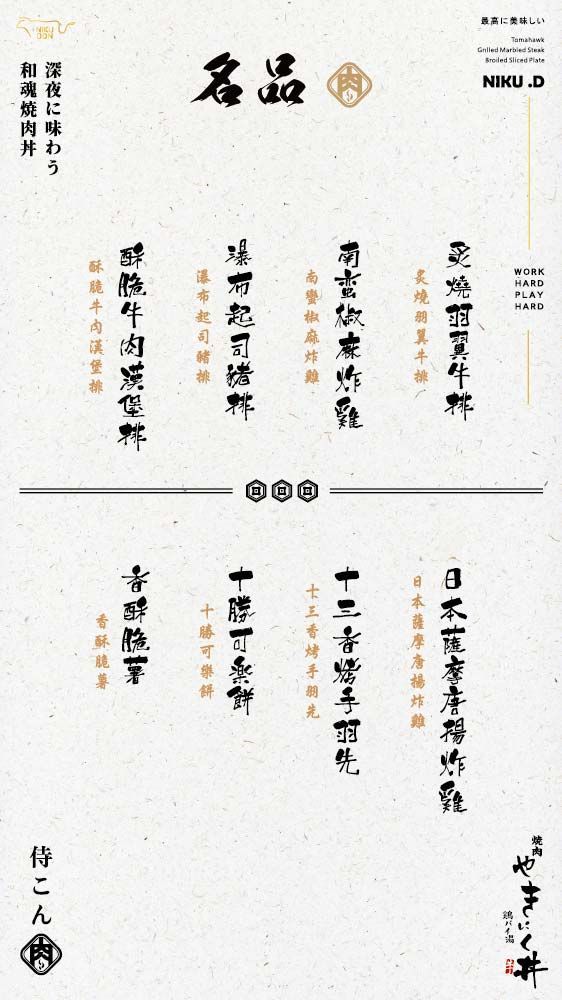 NIKU
DON
最高に美味しい
Tomahawk
Grilled Marbled Steak
Broiled Sliced Plate
NIKU .D
深夜に味わう
和魂焼肉丼
名品
肉
WORK
HARD
PLAY
HARD
炙燒羽翼牛排
炙燒羽翼牛排
南蛮椒麻炸雞
南蠻椒麻炸雞
瀑布起司猪排
瀑布起司豬排
酥脆牛肉漢堡排
酥脆牛肉漢堡排
日本薩摩唐揚炸雞
日本薩摩唐揚炸雞
十三香烤手羽先
十三香烤手羽先
十勝可楽餅
十勝可樂餅
香酥脆薯
香酥脆薯
侍こん
肉
焼肉
やきにく丼
鶏パイ湯